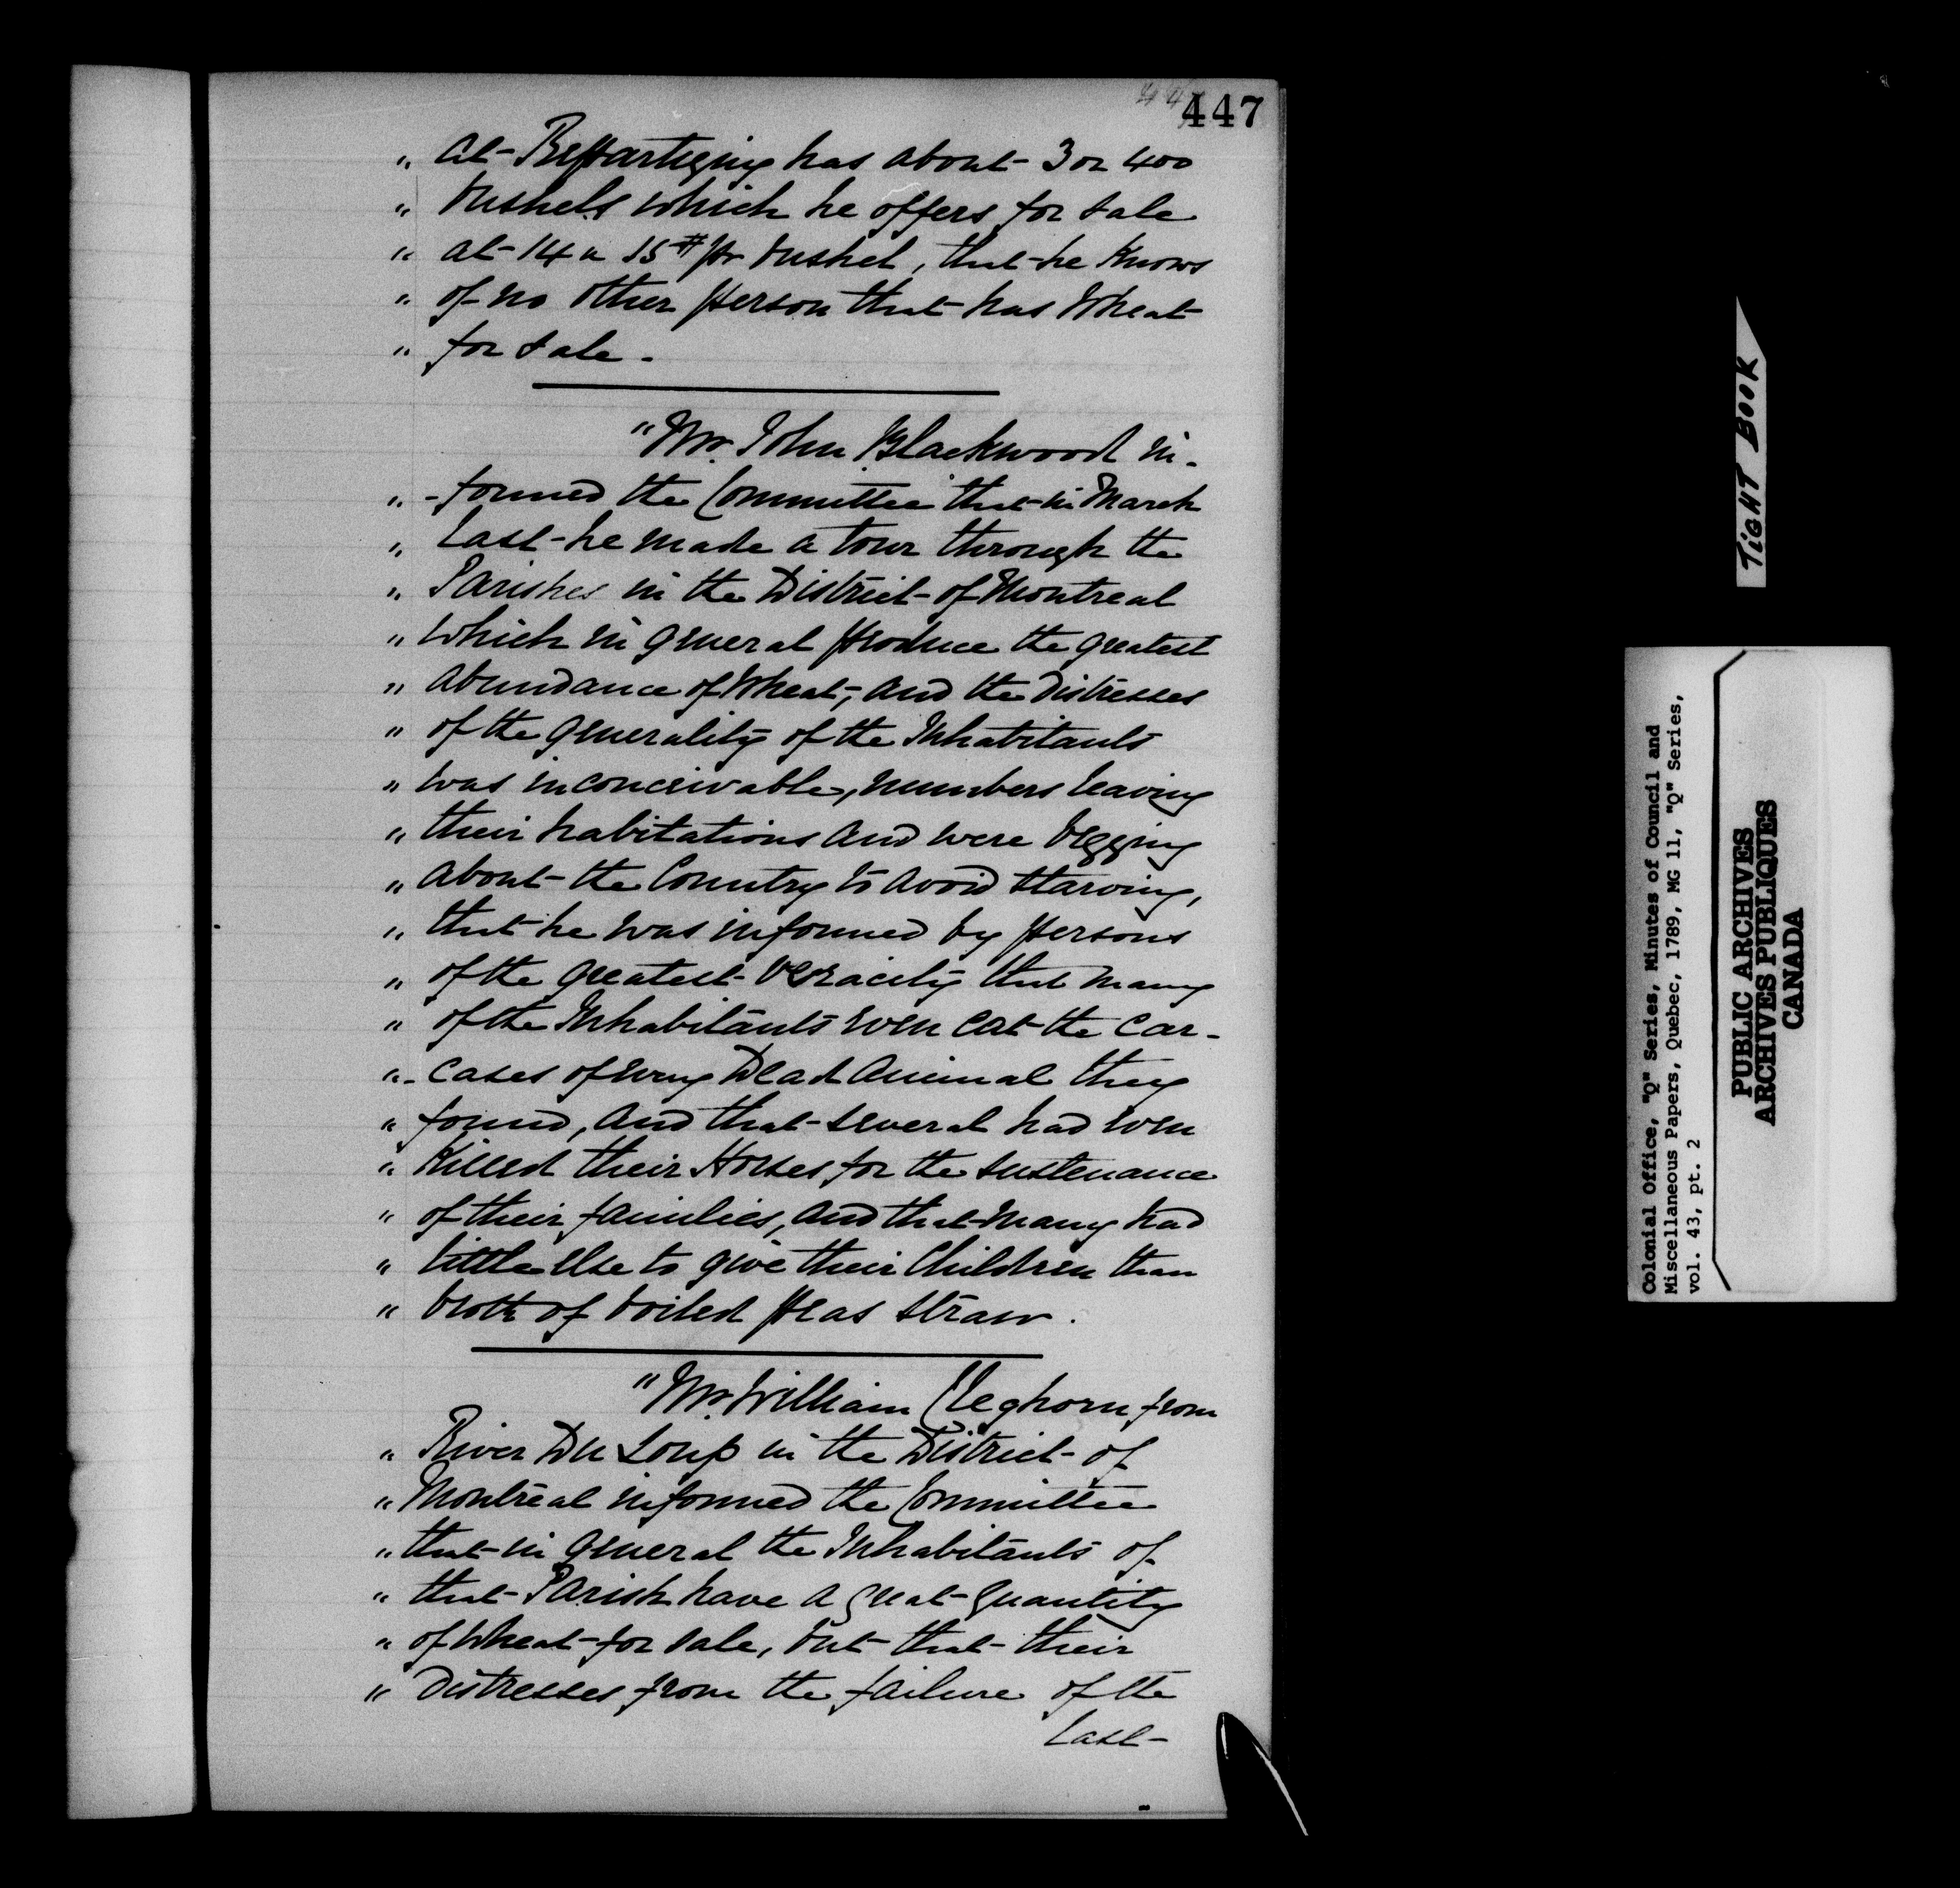 447
" at Repartigny has about 3 or 400
" bushels which he offers for sale
" at 14 a 15# pr bushel, that he knows
" of no other person that has Wheat
" for sale.
"Mr. John Blackwood in-
" -formed the Committee that in March
" last he made a tour through the
" Parishes in the District of Montreal
" which in general produce the greatest
" abundance of Wheat, and the distresses
" of the generality of the Inhabitants
" was inconceivable, numbers leaving
" their habitations and were begging
" about the Country to avoid starving,
" that he was informed by persons
" of the greatest veracity that many
" of the Inhabitants even eat the car-
" -cases of every Dead animal they
" found, and that several had even
" Killed their Horses for the sustenance
" of their families, and that many had
" little else to give their Children than
" broth of boiled peas straw.
"Mr. William Cleghorn from
" River Du Loup in the District of
" Montreal informed the Committee
" that in general the Inhabitants of
" that Parish have a great quantity
" of Wheat for sale, but that their
" distresses from the failure of the
last
TIGHT BOOK
Colonial Office, "Q" Series, Minutes of Council and
Miscellaneous Papers, Quebec, 1789, MG 11, "Q" Series,
vol. 43, pt. 2
PUBLIC ARCHIVES
ARCHIVES PUBLIQUES
CANADA